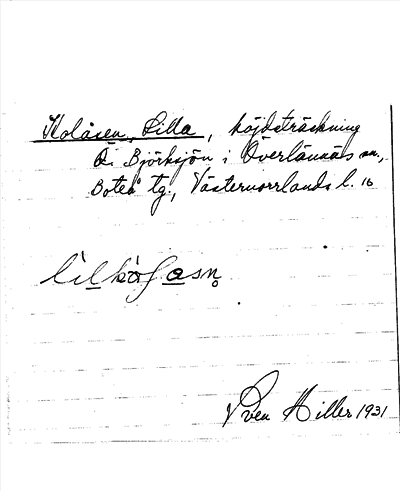 Kolåsen, Lilla, höjdsträckning
Ö. Björksjön i Överlännäs sn.,
Boteå tg., Västernorrlands l.
Sven Hiller 1931